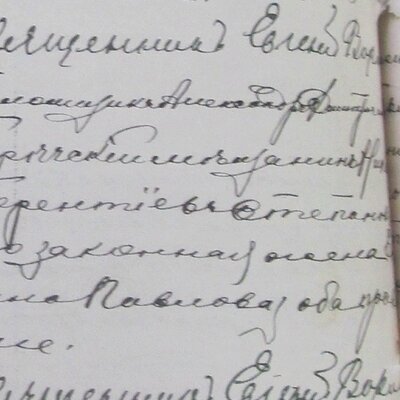 священникъ Евгеній Вор
псаломщикъ Александръ Дмитр
мѣщанинъ Ни
ерентіевъ Степан
о законная жена
на Павлова, оба пра
ые.
священникъ Евгеній Вор